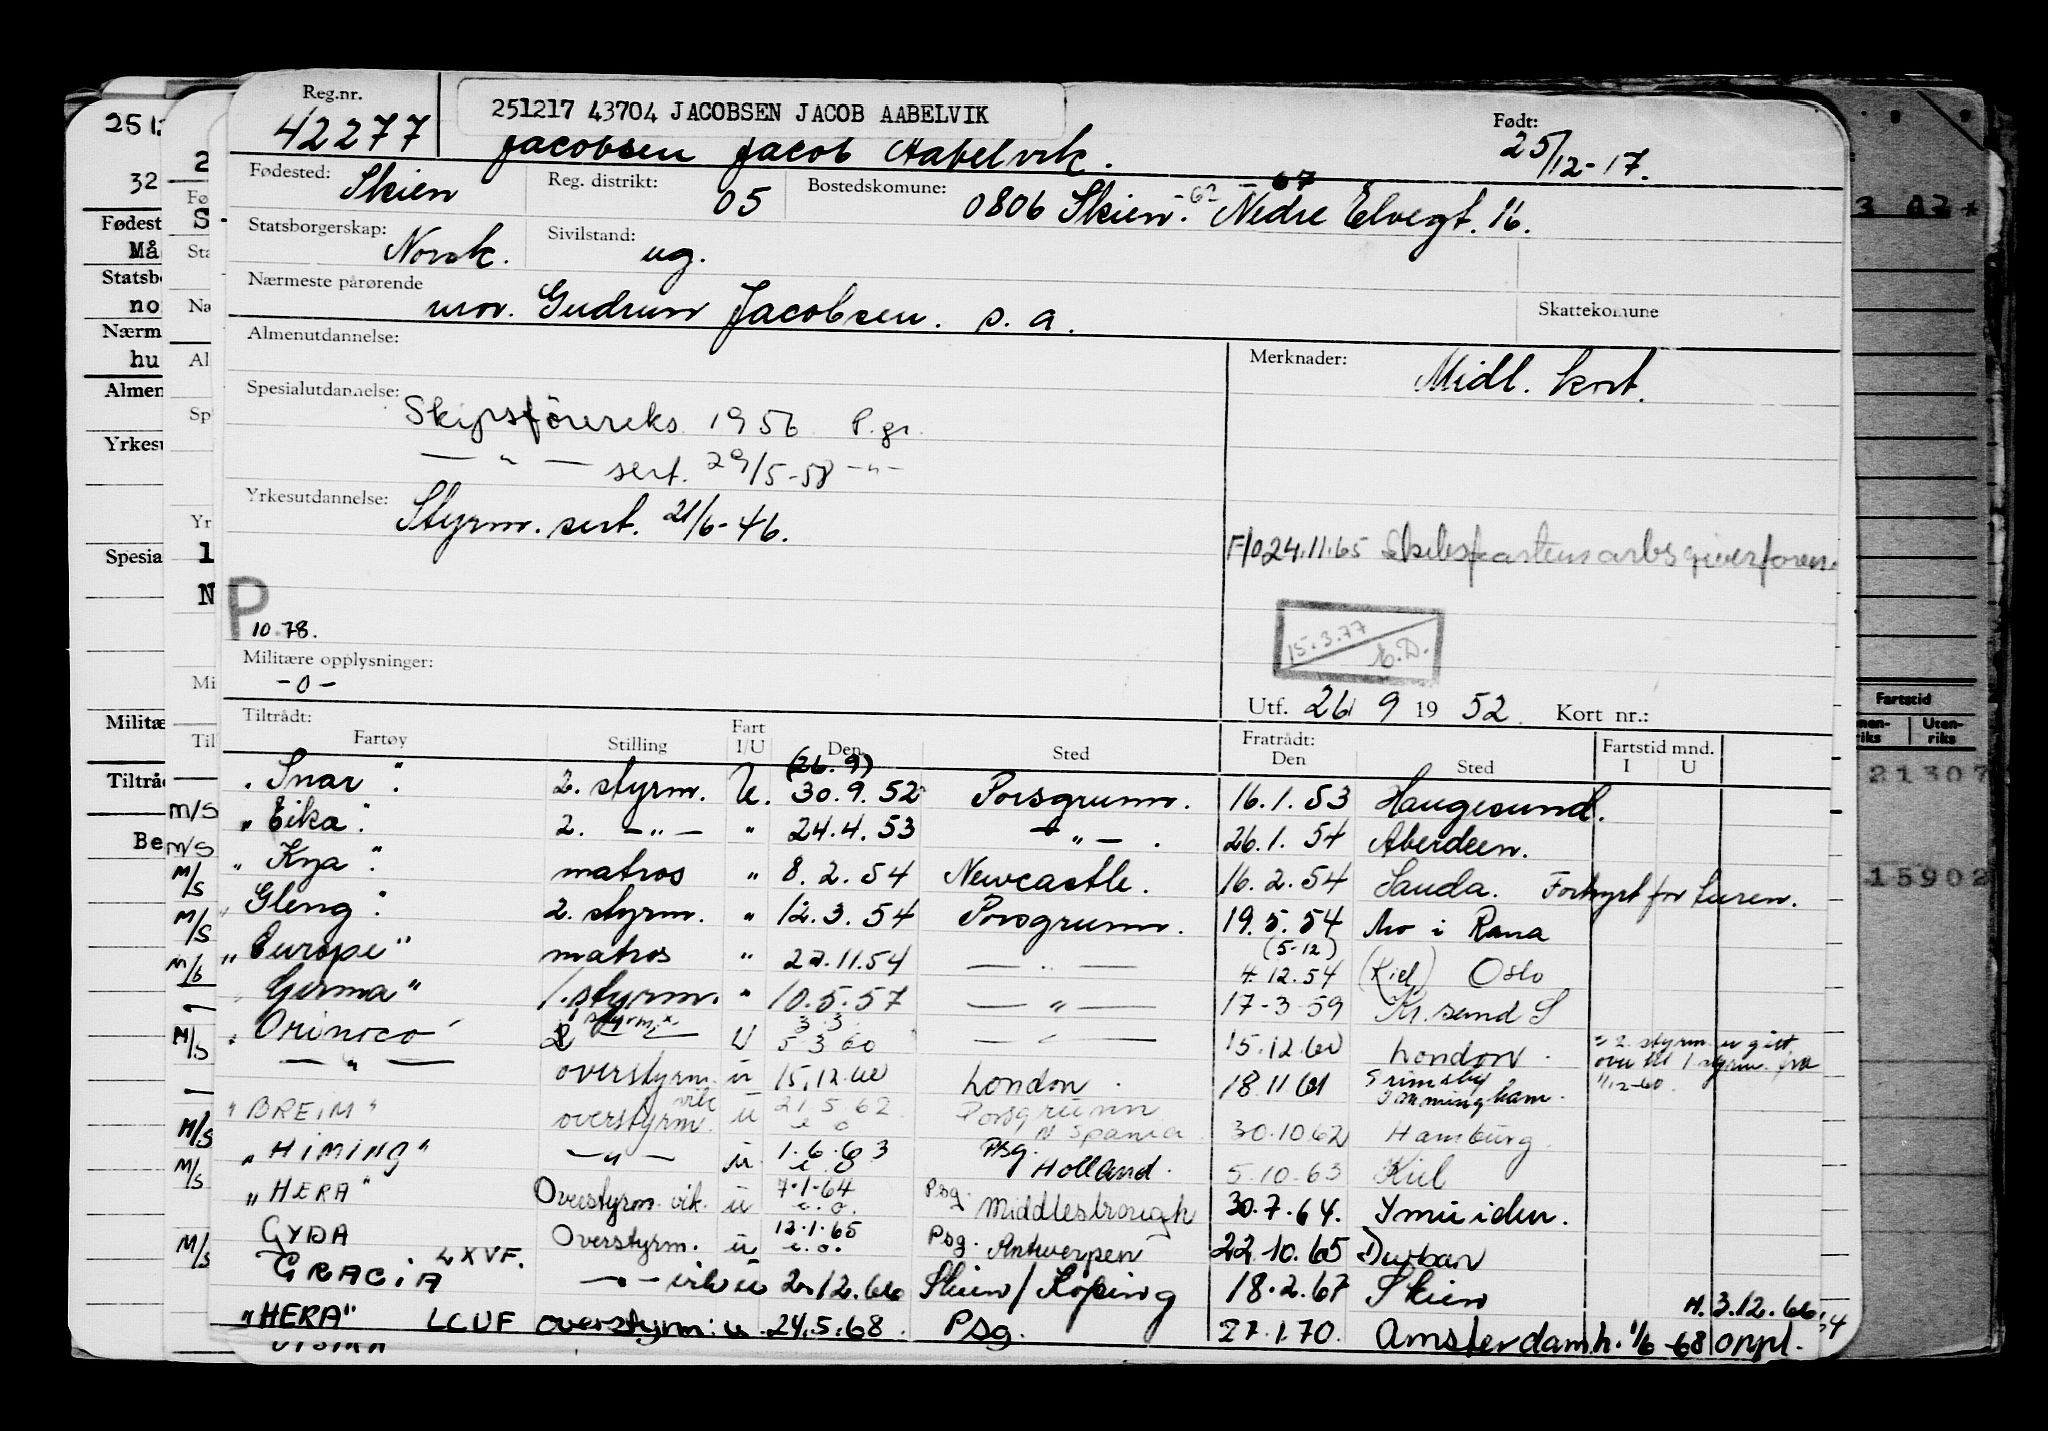 Reg.nr.
42277
251217 43704 JACOBSEN JACOB AABELVIK
Jacobsen Jacob Aabelvik.
Født:
25/12-17.
Fødested: Skien
Reg. distrikt: 05
Bostedskomune: 0806 Skien. -62 -67 Nedre Elvegt. 16.
Statsborgerskap: Norsk.
Sivilstand: ug.
Nærmeste pårørende
mor. Gudrun Jacobsen. s. a.
Skattekomune
Almenutdannelse:
Merknader: Midl. kort.
Spesialutdannelse:
Skipsförereks. 1956 P.gr.
— " — sert. 29/5-58 -"-
Yrkesutdannelse: Styrm. sert. 21/6-46.
F/o 24.11.65 Skibsfartens arbsgiverforen.
P
10.78.
15.3.77
Militære opplysninger:
-0-
Utf. 26 9 1952. Kort nr.:
Tiltrådt:
Fartøy Stilling Fart I/U Den Sted Fratrådt: Den Sted Fartstid mnd. I U
(26.9)
"Snar". 2. styrm. U. 30.9.52 Porsgrunn. 16.1.53 Haugesund.
M/S "Eika". 2. —"— " 24.4.53 —"—. 26.1.54 Aberdeen.
M/S "Knja". matros " 8.2.54 Newcastle. 16.2.54 Sauda. Forhyrt for turen.
M/S "Gleng". 2. styrm. " 12.3.54 Porsgrunn. 19.5.54 Mo i Rana
M/S "Europe" matros " 22.11.54 — " — (5-12) 4.12.54 (Kiel) Oslo
"Germa" 1. styrm. " 10.5.57 — " — 17-3-59 Kr.sand S
"Orinoco" 1 styrm. x. U 3.3. 5 3 60 — " — 15.12.60 London. x 2. styrm. er gått over til 1 styrm. fra 1/12-60.
M/S — " — overstyrm. u 15.12.60 London. 18.11.61 Grimsby Immingham.
"BREIM" overstyrm. vik u 21.5.62 Porsgrunn N Spania 30.10.62 Hamburg.
M/S "HIMING" —"— u. 1.6.63 Psg. Holland. 5.10.63 Kiel
M/S "HERA" Overstyrm. vik. u 7.1.64 e.o. Psg. Middlesbrough 30.7.64. Ymuiden.
GYDA Overstyrm. u 12.1.65 e.o. Psg. Antwerpen 22.10.65 Durban
M/S GRACIA LXVF. —"— vik u 2.12.66 Skien/Köping 18.2.67 Skien H. 3.12.66
"HERA" LCUF overstyrm. u 24.5.68. Psg. 27.1.70. Amsterdam h. 1/6-68 oppl.
25 12
32
Fødest
Må
Statsb
no
Nærm
hu
Almen
Yrkesu
Spesia
Militæ
Tiltråd
Be
2
Fø
S
Sta
Na
Al
Sp
Yr
1
N
Mi
Til
Fartstid
Uten-
riks
21307
15902